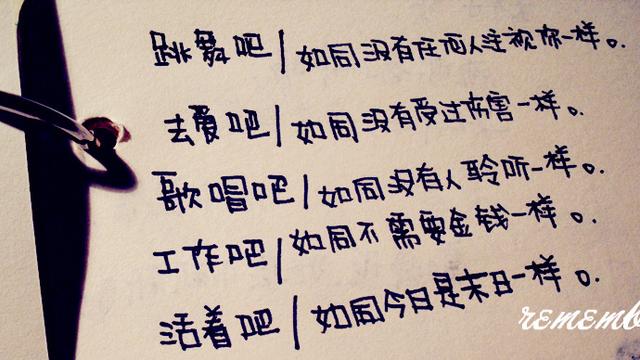 跳舞吧/如同没有任何人注视你一样。
去爱吧/如同没有受过伤害一样。
歌唱吧/如同没有人聆听一样。
工作吧/如同不需要金钱一样。
活着吧/如同今日是末日一样。
rememb